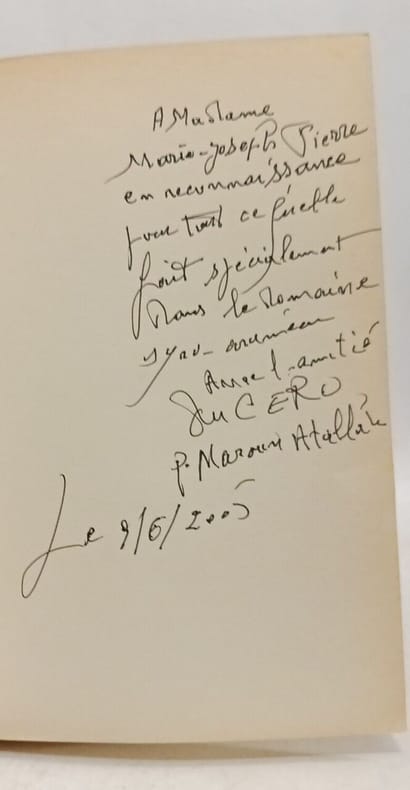 A Madame
Marie-Joseph Pierre
en reconnaissance
pour tout ce qu'elle
fait spécialement
dans le domaine
syro-araméen
Avec l'amitié
du CERO
p. Maroun Atallah
Le 9/6/2005